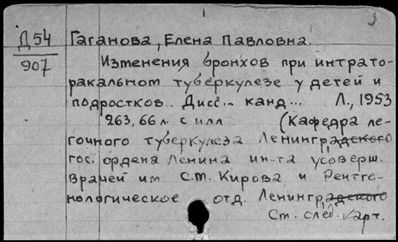 Д 54 Гаганова, Елена Павловна.
907
Изменения бронхов при интрато-
ракальном туберкулезе у детей и
подростков. Дисс... канд... Л., 1953
263, 66 л. с илл (Кафедра ле-
гочного туберкулеза Ленинградского
гос. ордена Ленина ин-та усоверш.
врачей им. С.М. Кирова и Рентге-
нологическое отд. Ленинградского
Ст. след. карт.